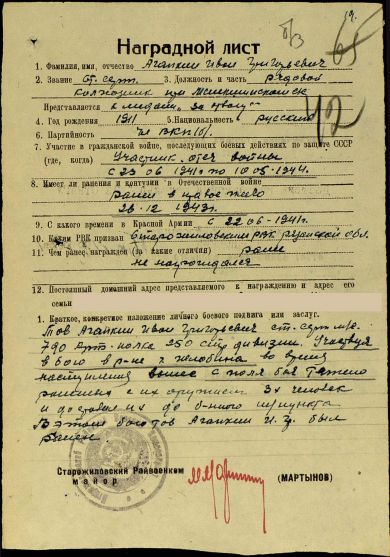 б/з
65
Наградной лист
1. Фамилия, имя, отчество Агапкин Иван Григорьевич
2. Звание ст. серж. 3. Должность и часть рядовой
колхозник
Представляется к медали „за отвагу“
42
4. Год рождения 1911 5. Национальность русский
6. Партийность чл ВКП(б).
7. Участие в гражданской войне, последующих боевых действиях по защите СССР
(где, когда) Участник отеч войны
с 23 06 1941г по 10.05.1944г.
8. Имеет ли ранения и контузии в Отечественной войне
ранен в правое
26.12 1943г.
9. С какого времени в Красной Армии с 22.06-1941г.
10. Каким РВК призван Старожиловским РВК Рязанской обл.
11. Чем ранее награжден (за какие отличия) ранее
не награждался
12. Постоянный домашний адрес представляемого к награждению и адрес его
семьи
1. Краткое, конкретное изложение личного боевого подвига или заслуг.
Тов Агапкин Иван Григорьевич ст. серж
790 арт. полка 250 стр дивизии. Участвуя
в бою в р-не г. Жлобина во время
наступления вынес с поля боя тяжело
раненых с их оружием 3х человек
и доставил их до
В этом бою тов Агапкин И. Г. был
ранен.
Старожиловский Райвоенком
майор (МАРТЫНОВ)